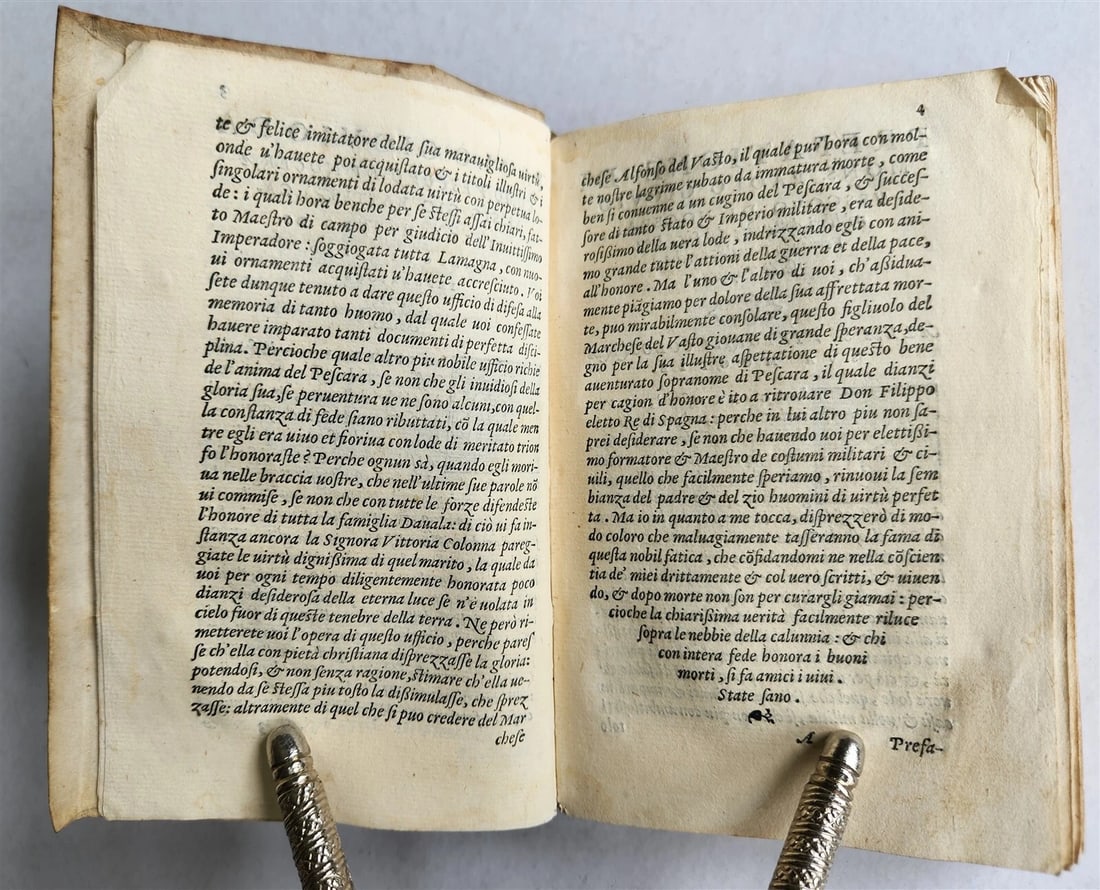 8
te & felice imitatore della sua marauigliosa uirtù,
onde u'hauete poi acquistato & i titoli illustri & i
singolari ornamenti di lodata uirtù con perpetua lo-
de: i quali hora benche per se stessi assai chiari, fat-
to Maestro di campo per giudicio dell'Inuittissimo
Imperadore: soggiogata tutta Lamagna, con nuo-
ui ornamenti acquistati u'hauete accresciuto. Voi
sete dunque tenuto a dare questo ufficio di difesa alla
memoria di tanto huomo, dal quale uoi confessate
hauere imparato tanti documenti di perfetta disci-
plina. Percioche quale altro piu nobile ufficio richie
de l'anima del Pescara, se non che gli inuidiosi della
gloria sua, se peruentura ue ne sono alcuni, con quel-
la constanza di fede siano ributtati, cō la quale men
tre egli era uiuo et fioriua con lode di meritato trion
fo l'honoraste? Perche ognun sà, quando egli mori-
ua nelle braccia uostre, che nell'ultime sue parole nō
ui commise, se non che con tutte le forze difendeste
l'honore di tutta la famiglia Dauala: di ciò ui fa in-
stanza ancora la Signora Vittoria Colonna pareg-
giate le uirtù dignissima di quel marito, la quale da
uoi per ogni tempo diligentemente honorata poco
dianzi desiderosa della eterna luce se n'è uolata in
cielo fuor di queste tenebre della terra. Ne però ri-
metterete uoi l'opera di questo ufficio, perche pares
se ch'ella con pietà christiana disprezzasse la gloria:
potendosi, & non senza ragione, stimare ch'ella ue-
nendo da se stessa piu tosto la dissimulasse, che sprez
zasse: altramente di quel che si puo credere del Mar
chese
4
chese Alfonso del Vasto, il quale pur hora con mol-
te nostre lagrime rubato da immatura morte, come
ben si conuenne a un cugino del Pescara, & succes-
sore di tanto stato & Imperio militare, era deside-
rosissimo della uera lode, indrizzando egli con ani-
mo grande tutte l'attioni della guerra et della pace,
all'honore. Ma l'uno & l'altro di uoi, ch'assidua-
mente piāgiamo per dolore della sua affrettata mor-
te, puo mirabilmente consolare, questo figliuolo del
Marchese del Vasto giouane di grande speranza, de-
gno per la sua illustre aspettatione di questo bene
auenturato sopranome di Pescara, il quale dianzi
per cagion d'honore è ito a ritrouare Don Filippo
eletto Re di Spagna: perche in lui altro piu non sa-
prei desiderare, se non che hauendo uoi per elettissi-
mo formatore & Maestro de costumi militari & ci-
uili, quello che facilmente speriamo, rinoui la sem
bianza del padre & del zio huomini di uirtù perfet
ta. Ma io in quanto a me tocca, disprezzerò di mo-
do coloro che maluagiamente tasseranno la fama di
questa nobil fatica, che cōfidandomi ne nella cōscien
tia de' miei drittamente & col uero scritti, & uiuen
do, & dopo morte non son per curargli giamai: per-
cioche la chiarissima uerità facilmente riluce
sopra le nebbie della calunnia: & chi
con intera fede honora i buoni
morti, si fa amici i uiui.
State sano.
A Prefa-